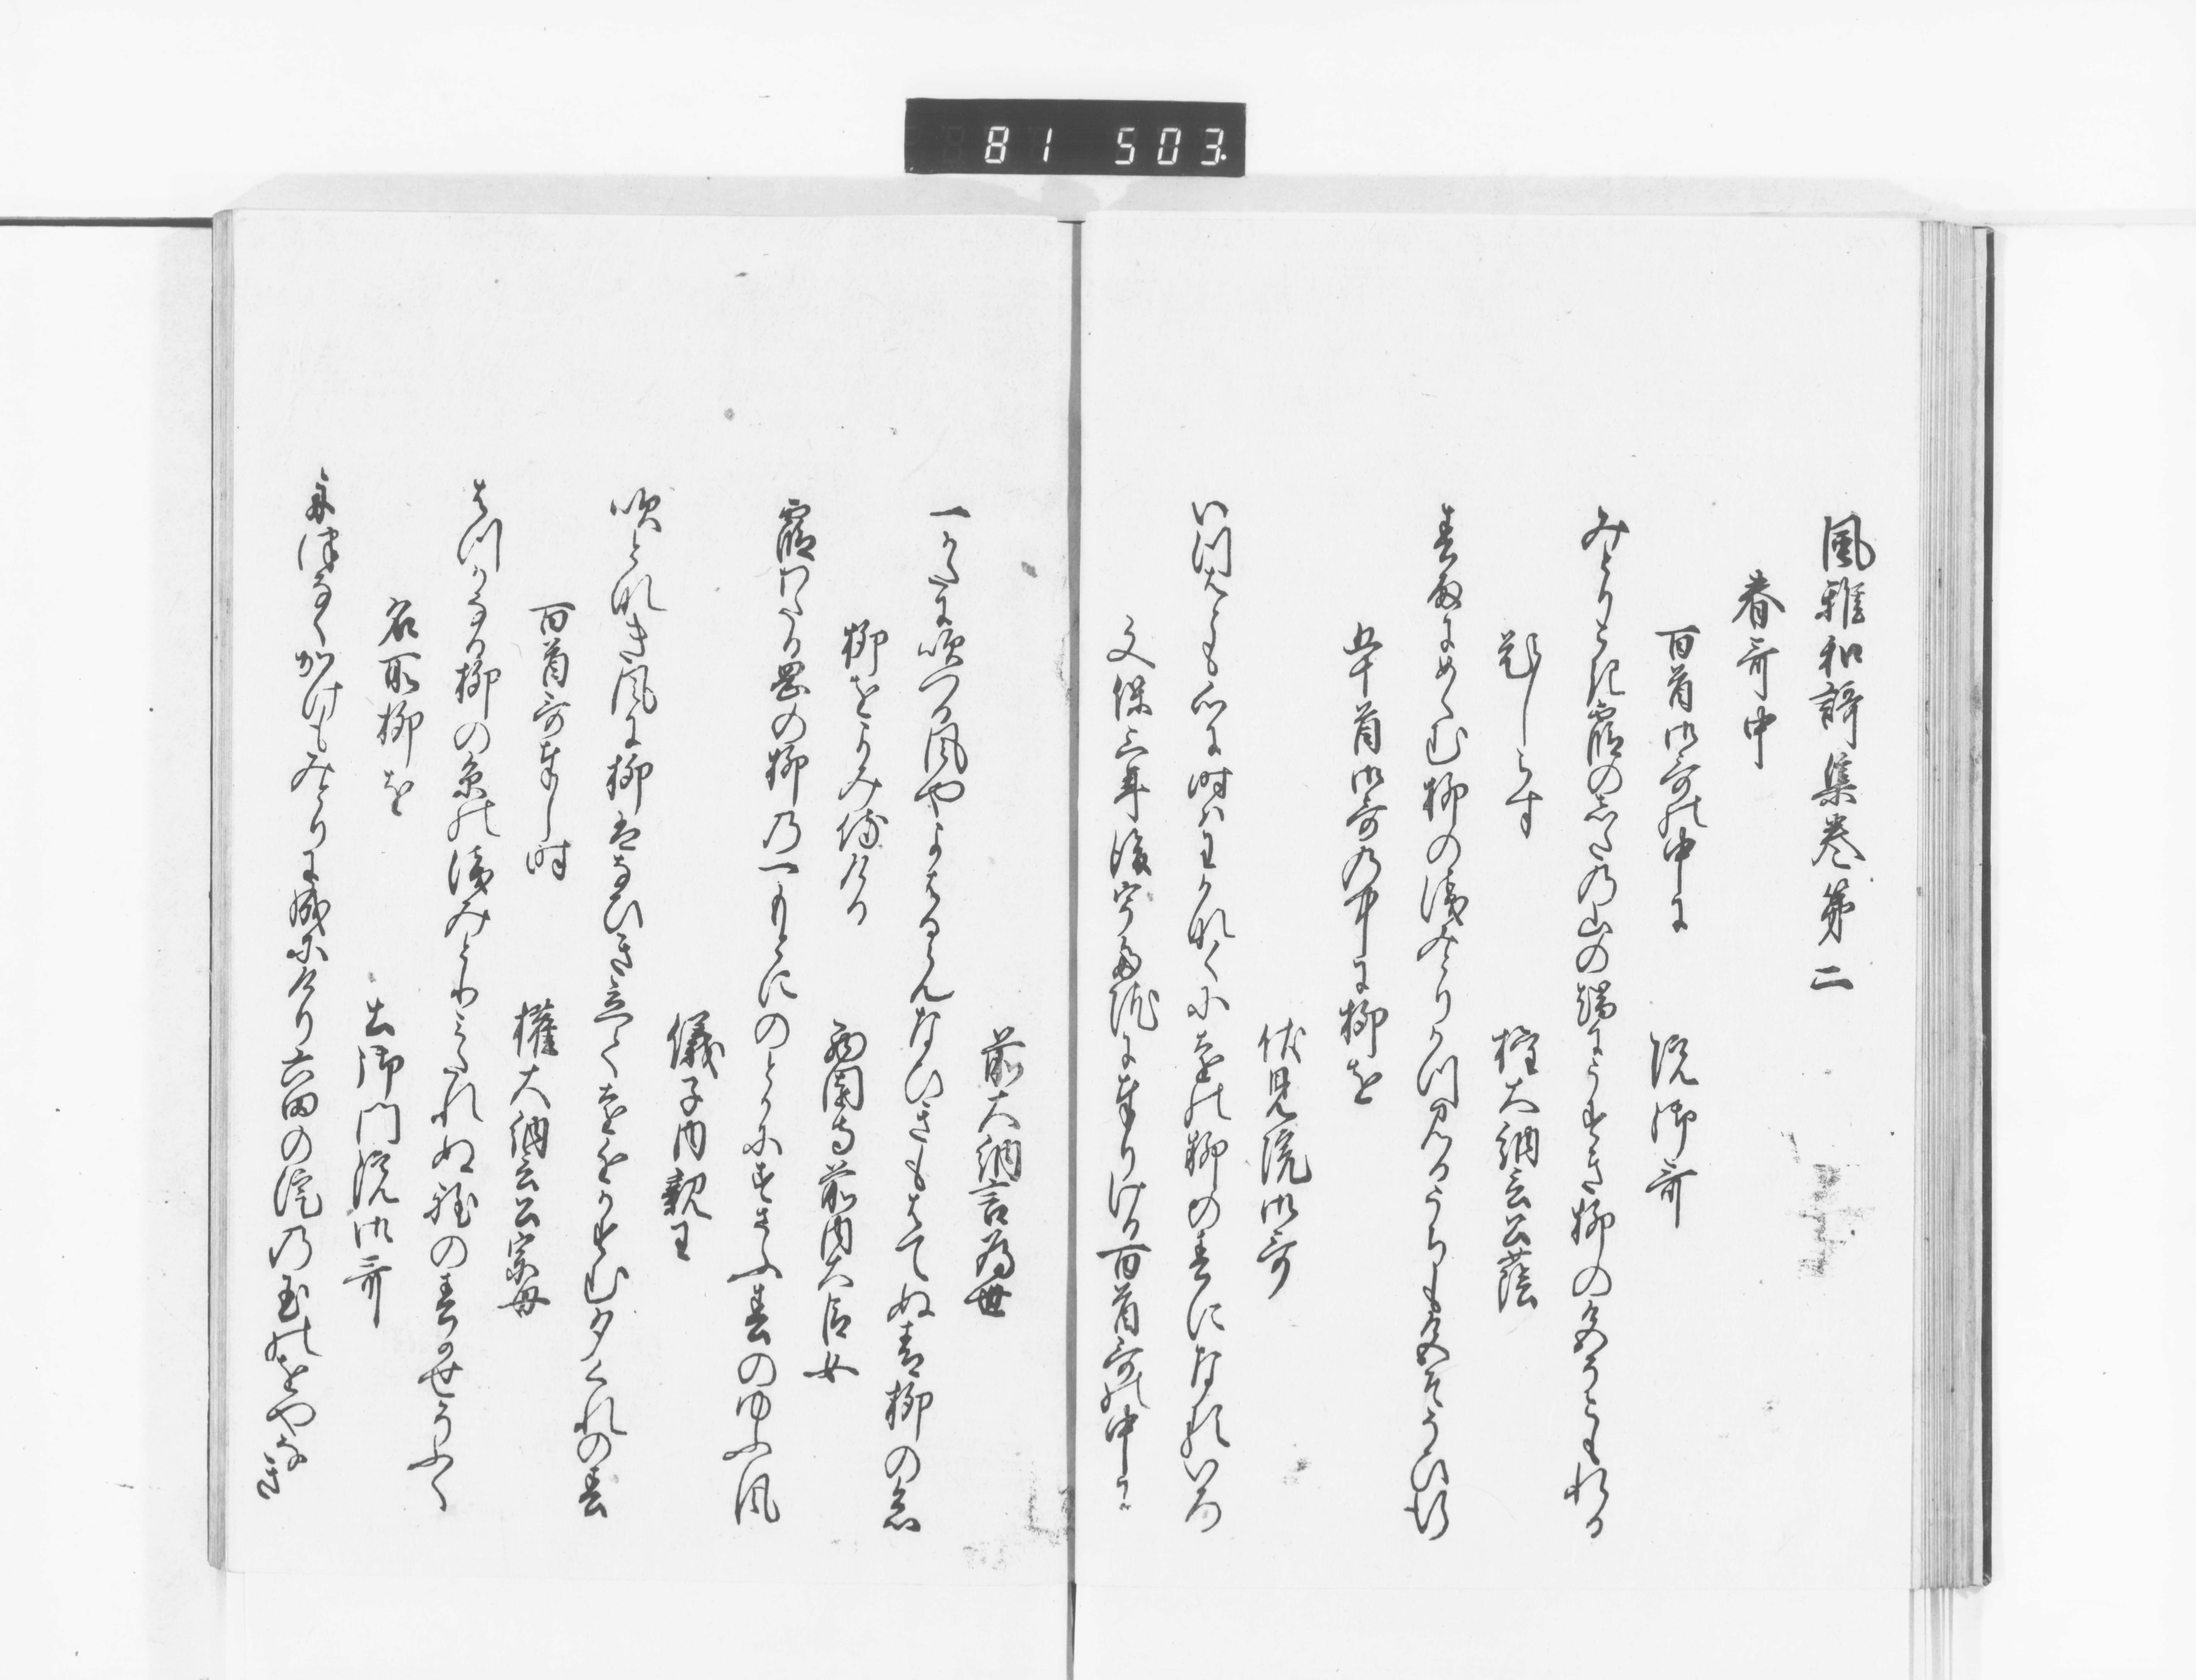 81 503.
風雅和謌集巻第二
春哥中
百首御哥の中に
院御哥
みとりこき霞のしたの山の端にうすき柳の色そこもれる
題しらす
権大納言公蔭
春雨にめくむ柳の浅みとりかつ見るうちも色そそひ行
五十首御哥の中に柳を
伏見院御哥
いつはとも心に時はわかなくにをちの柳の春になるいろ
文保三年後宇多院に奉りける百首哥の中に
前大納言為世
一かたに吹つる風やよはるらんなひきもはてぬ青柳の糸
柳をよみ侍ける
西園寺前内大臣女
霞わたる岡の柳の一もとにのとかにすさふ春のゆふ風
儀子内親王
吹となき風に柳はなひきたちてをちこちかすむ夕くれの春
百首哥奉し時
権大納言公宗母
はつかなる柳の糸の浅みとりみたれぬ程の春かせそふく
名所柳を
土御門院御哥
舟つなくかけもみとりに成にけり六田の淀の玉のをやなき